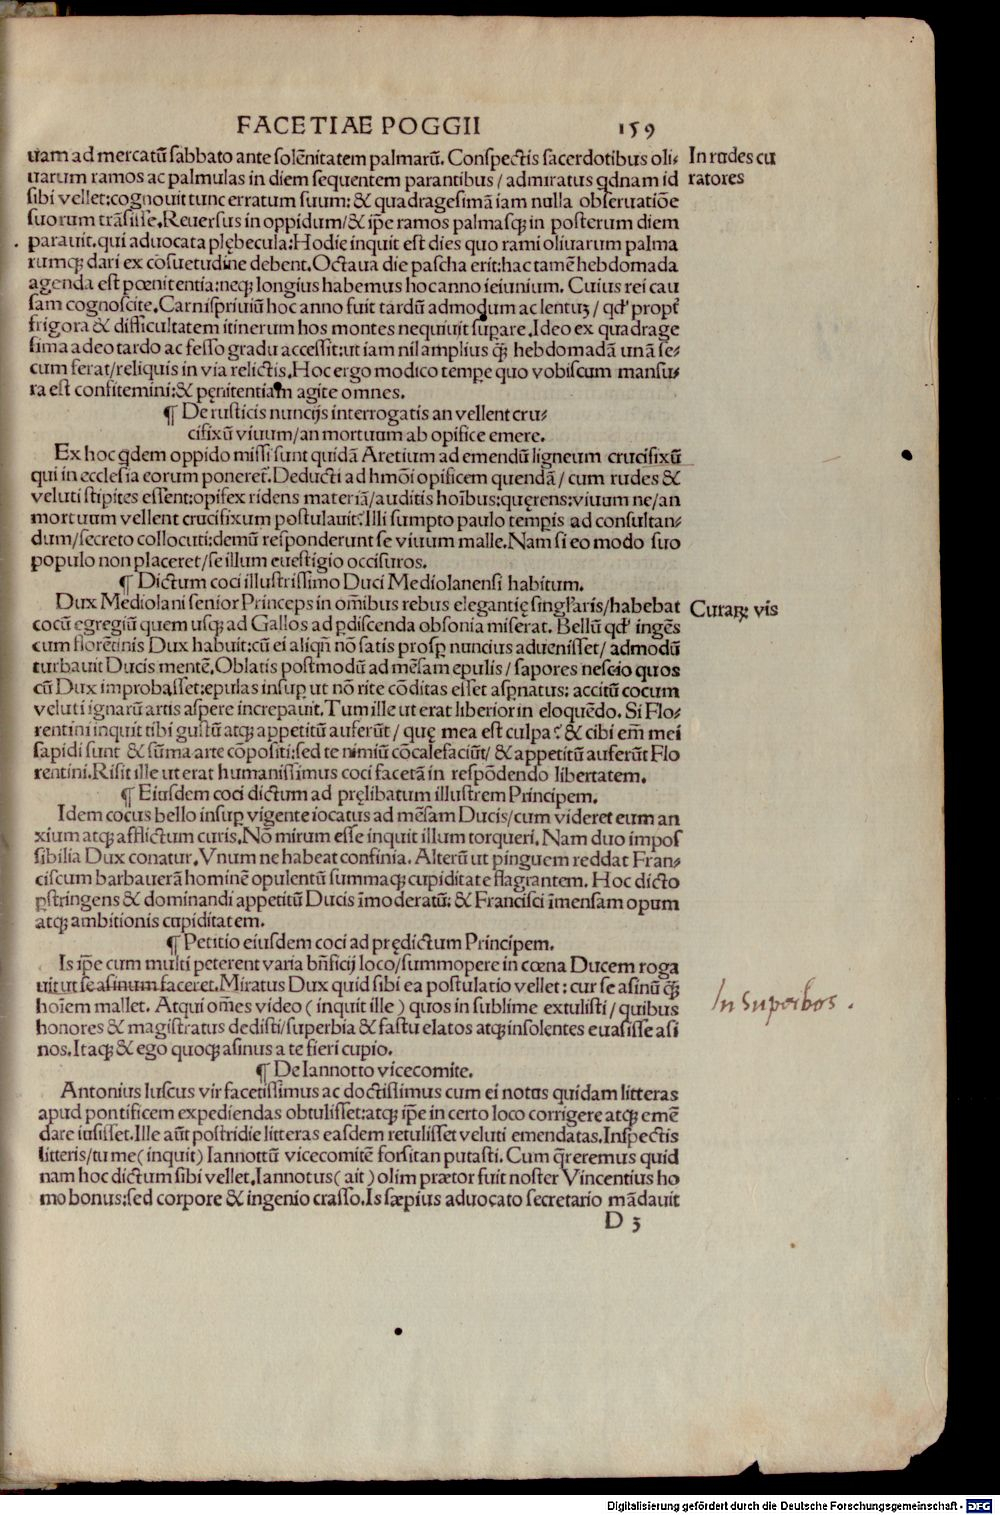 FACETIAE POGGII 159
uam ad mercatū sabbato ante solēnitatem palmarū. Conspectis sacerdotibus oli-
uarum ramos ac palmulas in diem sequentem parantibus / admiratus qdnam id
sibi vellet: cognouit tunc erratum suum: & quadragesimā iam nulla obseruatiōe
suorum trāsisse. Reuersus in oppidum/ & ip̄e ramos palmasq; in posterum diem
parauit. qui aduocata plębecula: Hodie inquit est dies quo rami oliuarum palma
rumq; dari ex cōsuetudine debent. Octaua die pascha erit: hac tamē hebdomada
agenda est pœnitentia: neq; longius habemus hoc anno ieiunium. Cuius rei cau
sam cognoscite. Carnispriuiū hoc anno fuit tardū admodum ac lentuȝ / qd' propt̄
frigora & difficultatem itinerum hos montes nequiuit sup̱are. Ideo ex quadrage
sima adeo tardo ac fesso gradu accessit: ut iam nil amplius q̄ꝫ hebdomadā unā se-
cum ferat/ reliquis in via relictis. Hoc ergo modico temp̱e quo vobiscum mansu-
ra est confitemini: & pęnitentiam agite omnes.
In rudes cu
ratores
¶ De rusticis nuncijs interrogatis an vellent cru-
cifixū viuum/ an mortuum ab opifice emere.
Ex hoc qdem oppido missi sunt quidā Aretium ad emendū ligneum crucifixū
qui in ecclesia eorum poneret̄. Deducti ad hmōi opificem quendā / cum rudes &
veluti stipites essent: opifex ridens materiā/ auditis hoībus: quęrens: viuum ne/ an
mortuum vellent crucifixum postulauit? Illi sumpto paulo temp̱is ad consultan-
dum/ secreto collocuti: demū responderunt se viuum malle. Nam si eo modo suo
populo non placeret/ se illum euestigio occisuros.
¶ Dictum coci illustrissimo Duci Mediolanensi habitum.
Dux Mediolani senior Princeps in om̄ibus rebus elegantię singl'aris/ habebat
cocū egregiū quem usq; ad Gallos ad p̱discenda obsonia miserat. Bellū qd' ingēs
cum florētinis Dux habuit: cū ei aliqn̄ nō satis prosp̱ nuncius aduenisset/ admodū
turbauit Ducis mentē. Oblatis postmodū ad mēsam epulis / sapores nescio quos
cū Dux improbasset: epulas insup̱ ut nō rite cōditas esset asp̱natus: accitū cocum
veluti ignarū artis aspere increpauit. Tum ille ut erat liberior in eloquēdo. Si Flo-
rentini inquit tibi gustū atq; appetitū auferūt / quę mea est culpa? & cibi em̄ mei
sapidi sunt & sūma arte cōpositi: sed te nimiū cōcalefaciūt/ & appetitū auferūt Flo
rentini. Risit ille ut erat humanissimus coci facetā in respōdendo libertatem.
Curaꝝ vis
¶ Eiusdem coci dictum ad pręlibatum illustrem Principem.
Idem cocus bello insup̱ vigente iocatus ad mēsam Ducis/ cum videret eum an
xium atq; afflictum curis. Nō mirum esse inquit illum torqueri. Nam duo impos
sibilia Dux conatur. Vnum ne habeat confinia. Alterū ut pinguem reddat Fran-
ciscum barbauerā hominē opulentū summaq; cupiditate flagrantem. Hoc dicto
p̱stringens & dominandi appetitū Ducis īmoderatū: & Francisci īmensam opum
atq; ambitionis cupiditatem.
¶ Petitio eiusdem coci ad prędictum Principem.
Is ip̄e cum multi peterent varia bn̄ficij loco/ summopere in cœna Ducem roga
uit ut se asinum faceret. Miratus Dux quid sibi ea postulatio vellet : cur se asinū q̄ꝫ
hoīem mallet. Atqui om̄es video ( inquit ille ) quos in sublime extulisti / quibus
honores & magistratus dedisti/ superbia & fastu elatos atq; insolentes euasisse asi
nos. Itaq; & ego quoq; asinus a te fieri cupio.
In Superbos .
¶ De Iannotto vicecomite.
Antonius luscus vir facetissimus ac doctissimus cum ei notus quidam litteras
apud pontificem expediendas obtulisset: atq; ip̄e in certo loco corrigere atq; emē
dare iusisset. Ille aūt postridie litteras easdem retulisset veluti emendatas. Inspectis
litteris/ tu me ( inquit ) Iannottū vicecomitē forsitan putasti. Cum q̄reremus quid
nam hoc dictum sibi vellet. Iannotus ( ait ) olim prætor fuit noster Vincentius ho
mo bonus: sed corpore & ingenio crasso. Is sæpius aduocato secretario mādauit
D 3
Digitalisierung gefördert durch die Deutsche Forschungsgemeinschaft - DFG